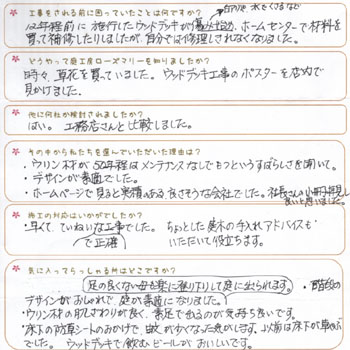 工事をする前に困っていたことは何ですか?
12年程前に施行したウッドデッキが傷み出し、ホームセンターで材料を
買って補修したりしましたが、自分では修理しきれなくなりました。
どうやって庭工房ローズマリーを知りましたか?
時々、草花を買っていました。ウッドデッキ工事のポスターを店内で
見かけました。
他に何社か検討されましたか?
はい。工務店さんと比較しました。
その中から私たちを選んでいただいた理由は?
・ウリン材が50年程はメンテナンスなしでもつというすばらしさを聞いて。
・デザインが素敵でした。
・ホームページで見ると実績のある良さそうな会社でした。社長さんの小冊子も
良いと思いました。
施工の対応はいかがでしたか?
・早くて、ていねいな工事でした。ちょっとした庭木の手入れアドバイスも
で正確
いただいて役立ちます。
気に入ってらっしゃる所はどこですか?
足の良くない母も楽に登り下りして庭に出られます。・階段の
デザインがおしゃれで、庭が素敵になりました。
・ウリン材の肌ざわりが良く、素足で出るのが気持ち良いです。
・床下の防草シートのおかげで、蚊が少なくなった気がします。以前は床下が草ぼうぼう
でした。ウッドデッキで飲むビールがおいしいです。